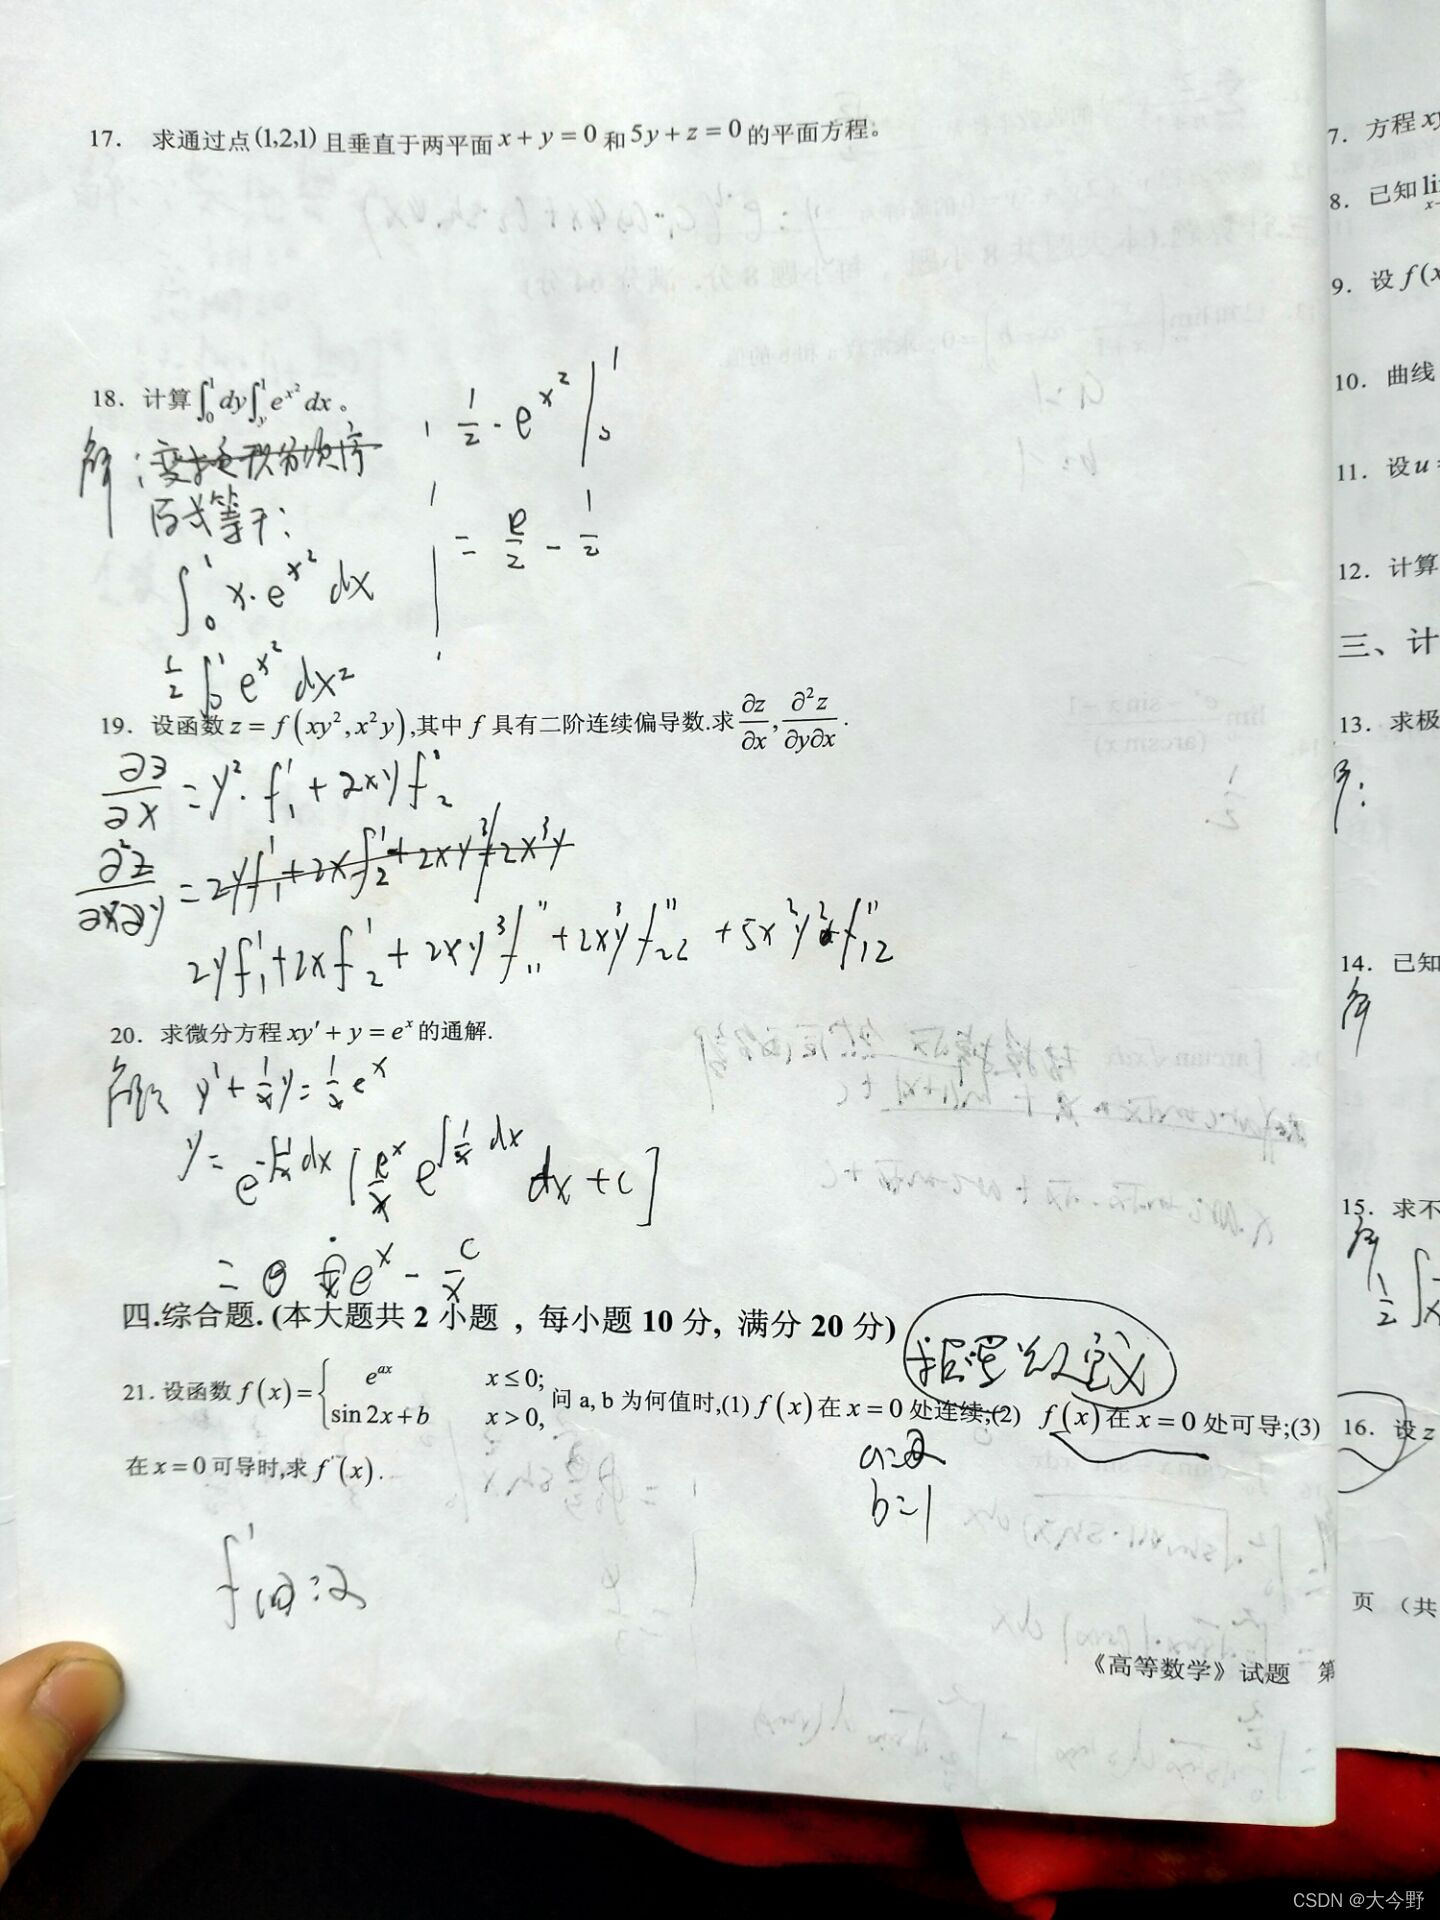 17. 求通过点(1,2,1)且垂直于两平面x+y=0和5y+z=0的平面方程。
18. 计算∫₀¹dy∫ᵧ¹e^{x²}dx。
解:
原式等于:
∫₀¹ x·e^{x²} dx
½∫₀¹ e^{x²} dx²
½·e^{x²}|₀¹
= e/2 - 1/2
19. 设函数z=f(xy²,x²y),其中f具有二阶连续偏导数.求∂z/∂x,∂²z/∂y∂x.
∂z/∂x = y²·f₁' + 2xyf₂'
∂²z/∂x∂y = 2yf₁'+2xf₂'+2xy³/2x³y
2yf₁'+2xf₂'+2xy³f₁₁''+2xy³f₂₂''+5x²y²f₁₂''
20. 求微分方程xy'+y=e^x的通解.
y'+1/x y=1/x e^x
y=e^{-∫1/x dx}[e^x/x e^{∫1/x dx} dx+C]
= e^x - C/x
四.综合题.(本大题共2小题,每小题10分,满分20分)
21. 设函数f(x)={e^{ax} x≤0; sin2x+b x>0, 问a, b为何值时,(1) f(x)在x=0处连续;(2) f(x)在x=0处可导;(3)
在x=0可导时,求f'(x).
a=2
b=1
《高等数学》试题 第
7. 方程xy
8. 已知lim x→
9. 设f(x
10. 曲线
11. 设u=
12. 计算
三、计
13. 求极
14. 已知
解
15. 求不
解
16. 设z
页 (共
CSDN @大今野